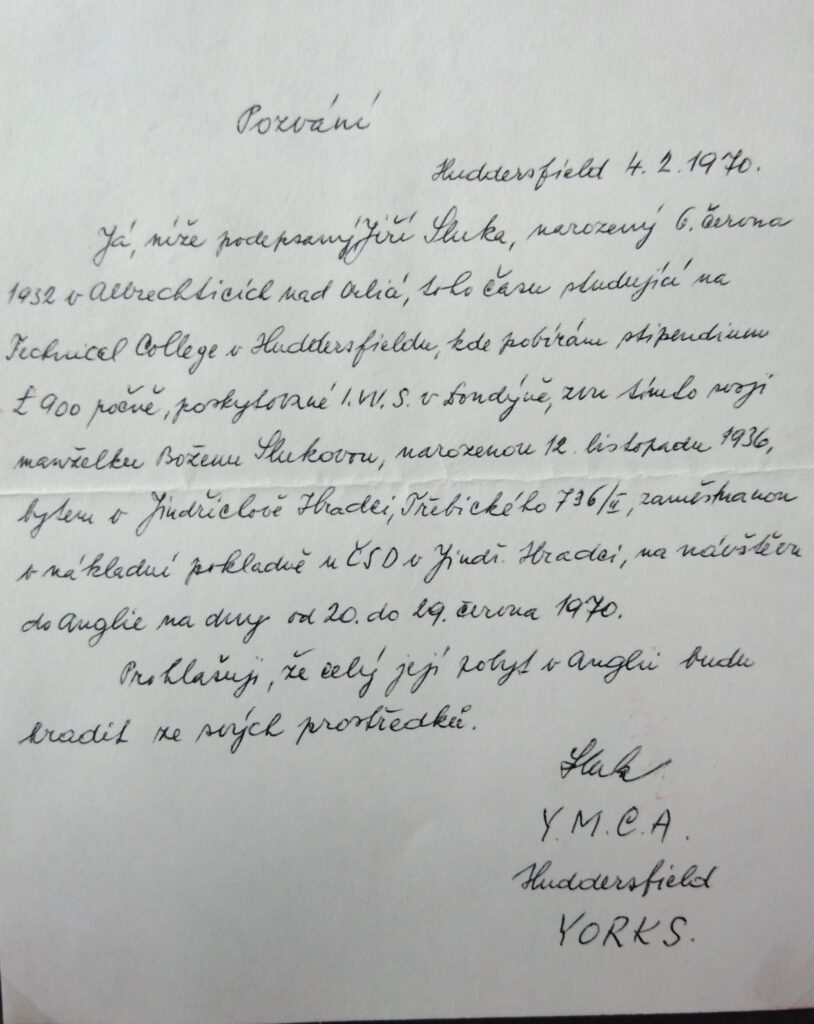 Pozvání
Huddersfield 4. 2. 1970.
Já, níže podepsaný Jiří Sluka, narozený 6. června
1932 v Albrechticích nad Orlicí, toho času studující na
Technical College v Huddersfieldu, kde pobírám stipendium
£ 900 počně, poskytované I.W.S. v Londýně, zvu tímto svoji
manželku Boženu Slukovou, narozenou 12. listopadu 1936,
bytem v Jindřichově Hradci, Třebického 736/II, zaměstnanou
v nákladní pokladně u ČSD v Jindř. Hradci, na návštěvu
do Anglie na dny od 20. do 29. června 1970.
Prohlašuji, že celý její pobyt v Anglii budu
hradit ze svých prostředků.
Sluka
Y.M.C.A.
Huddersfield
YORKS.